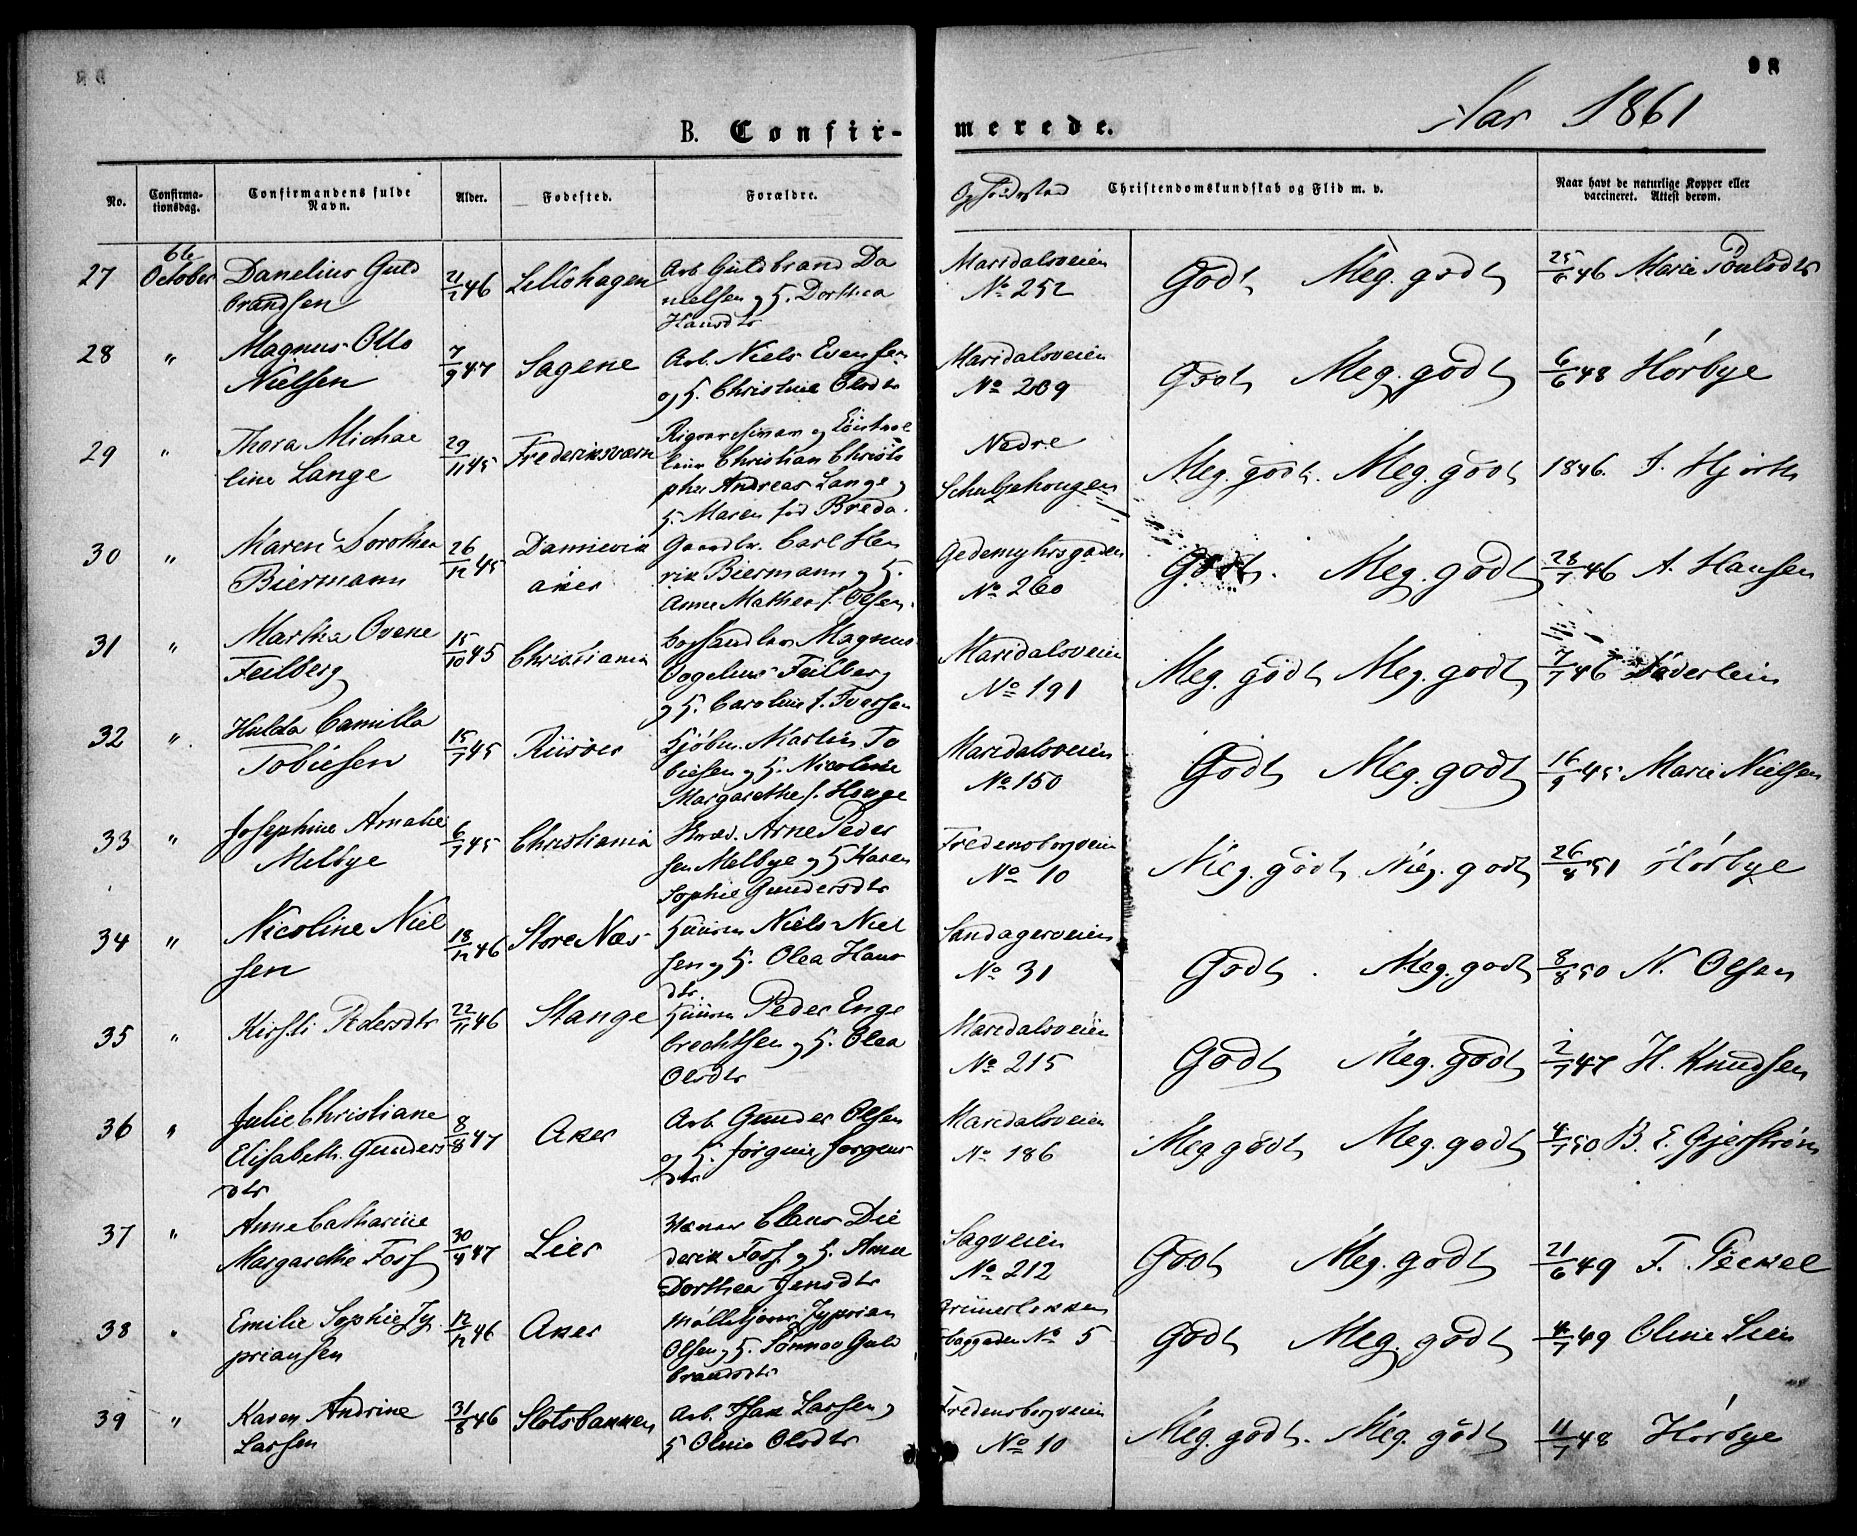 98
Aar 1861
B. Confir-
merede.
No.
Confirma-
tionsdag.
Confirmandens fulde
Navn.
Alder.
Fødested.
Forældre.
Christendomskundskab og Flid m. v.
Naar havt de naturlige Kopper eller
vaccineret. Attest derom.
27 6te October Danelius Guld
brandsen
21/1 46 Lillohagen
Arb. Guldbrand Da
nielsen og H. Dorthea
Hansdtr
Maridalsveien
No 252
Godt Meg. godt 25/6 46 Marie Poulsdtr
28 " Magnus Otto
Nielsen
7/9 47 Sagene
Arb. Niels Evensen
og H. Christine Olsdtr
Maridalsveien
No 209
Godt Meg. godt 6/6 48 Hørbye
29 " Thora Michae
line Lange
29/11 45 Frederiksværn
Christian Christo
pher Andreas Lange og
H. Maren fød Breda.
Nedre
Schultzehougen
Meg. godt. Meg. godt 1846. J. Hjorth
30 " Maren Dorothea
Biermann
26/12 45 Damievik
aker
Gaardbr. Carl Hen
rik Biermann og H.
Anne Mathea f. Olsen.
Gedemyhrsgaden
No 260
Godt. Meg. godt 28/7 46 A. Hansen
31 " Martha Ovene
Feilberg
15/10 45 Christiania
Magnus
Vogelius Feilberg
og H. Caroline f. Iversen
Maridalsveien
No 191
Meg. godt Meg. godt 7/7 46 Döderlein
32 " Hulda Camilla
Tobiesen
15/7 45 Riisøer
Kjøbm. Martin To
biesen og H. Nicoline
Margarethe f. Houge
Maridalsveien
No 150
Godt Meg. godt 16/9 45 Marie Nielsen
33 " Josephine Amalie
Melbye
6/7 45 Christiania
Arne Peder
sen Melbye og H. Karen
Sophie Gundersdtr
Fredensborgveien
No 10
Meg. godt Meg. godt 26/8 51 Hørbye
34 " Nicoline Niel
sen
18/12 46 Store Næs
Huusm Niels Niel
sen og H. Olea Hans
dtr.
Sandagerveien
No 31
Godt. Meg. godt 8/8 50 N. Olsen
35 " Kirsti Pedersdtr
22/11 46 Stange
Huusm Peder Enge
brechtsen og H. Olea
Olsdtr
Maridalsveien
No 215
Godt Meg. godt 2/7 47 H. Knudsen
36 " Julie Christiane
Elisabeth Gunders
dtr
8/8 47 Aker
Arb. Gunder Olsen
og H. Jørgine Jørgens
dtr
Maridalsveien
No 186
Meg godt Meg. godt 4/7 50 B. E. Gjerstrøm
37 " Anne Catharine
Margarethe Foss
30/4 47 Lier
Claus Die
derik Foss og H. Anne
Dorthea Jensdtr
Sagveien
No 212
Godt Meg. godt 21/6 49 F. Peckel
38 " Emilie Sophie Zy
priansen
12/12 46 Aker
Møllebjører Zyprian
Olsen og H. Sønnov Guld
brandsdtr
Grünerløkken
No 5
Godt Meg. godt 4/7 49 Oline Lien
39 " Karen Andrine
Larsen
31/8 46 Slotsbakken
Arb. Isak Larsen og
H Oline Olsdtr
Fredensborgveien
No 10
Meg. godt. Meg. godt 11/7 48 Hørbye